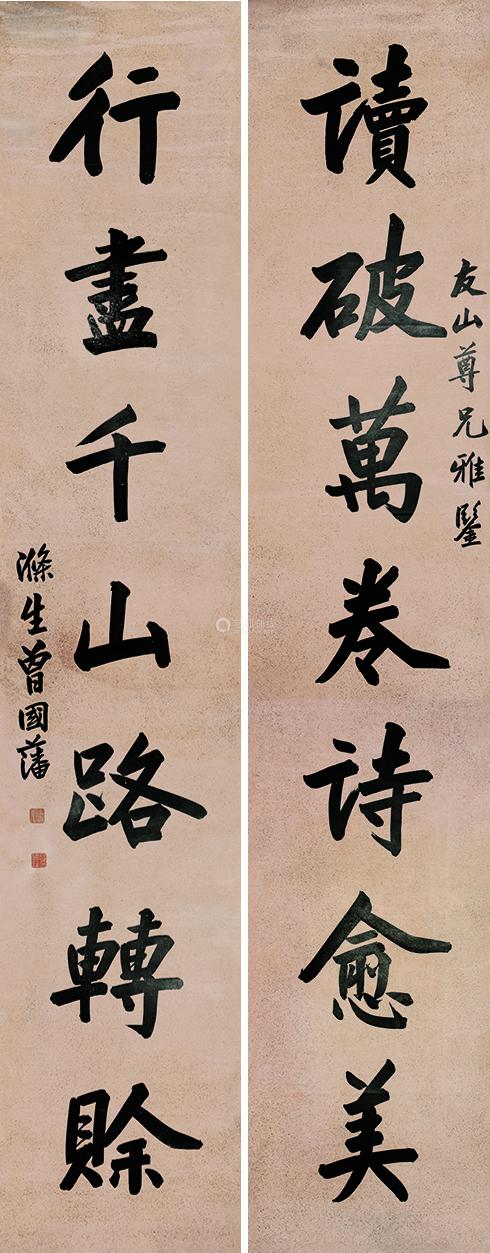 友山尊兄雅鑒
讀破萬卷詩愈美
行盡千山路轉賒
滌生曾國藩